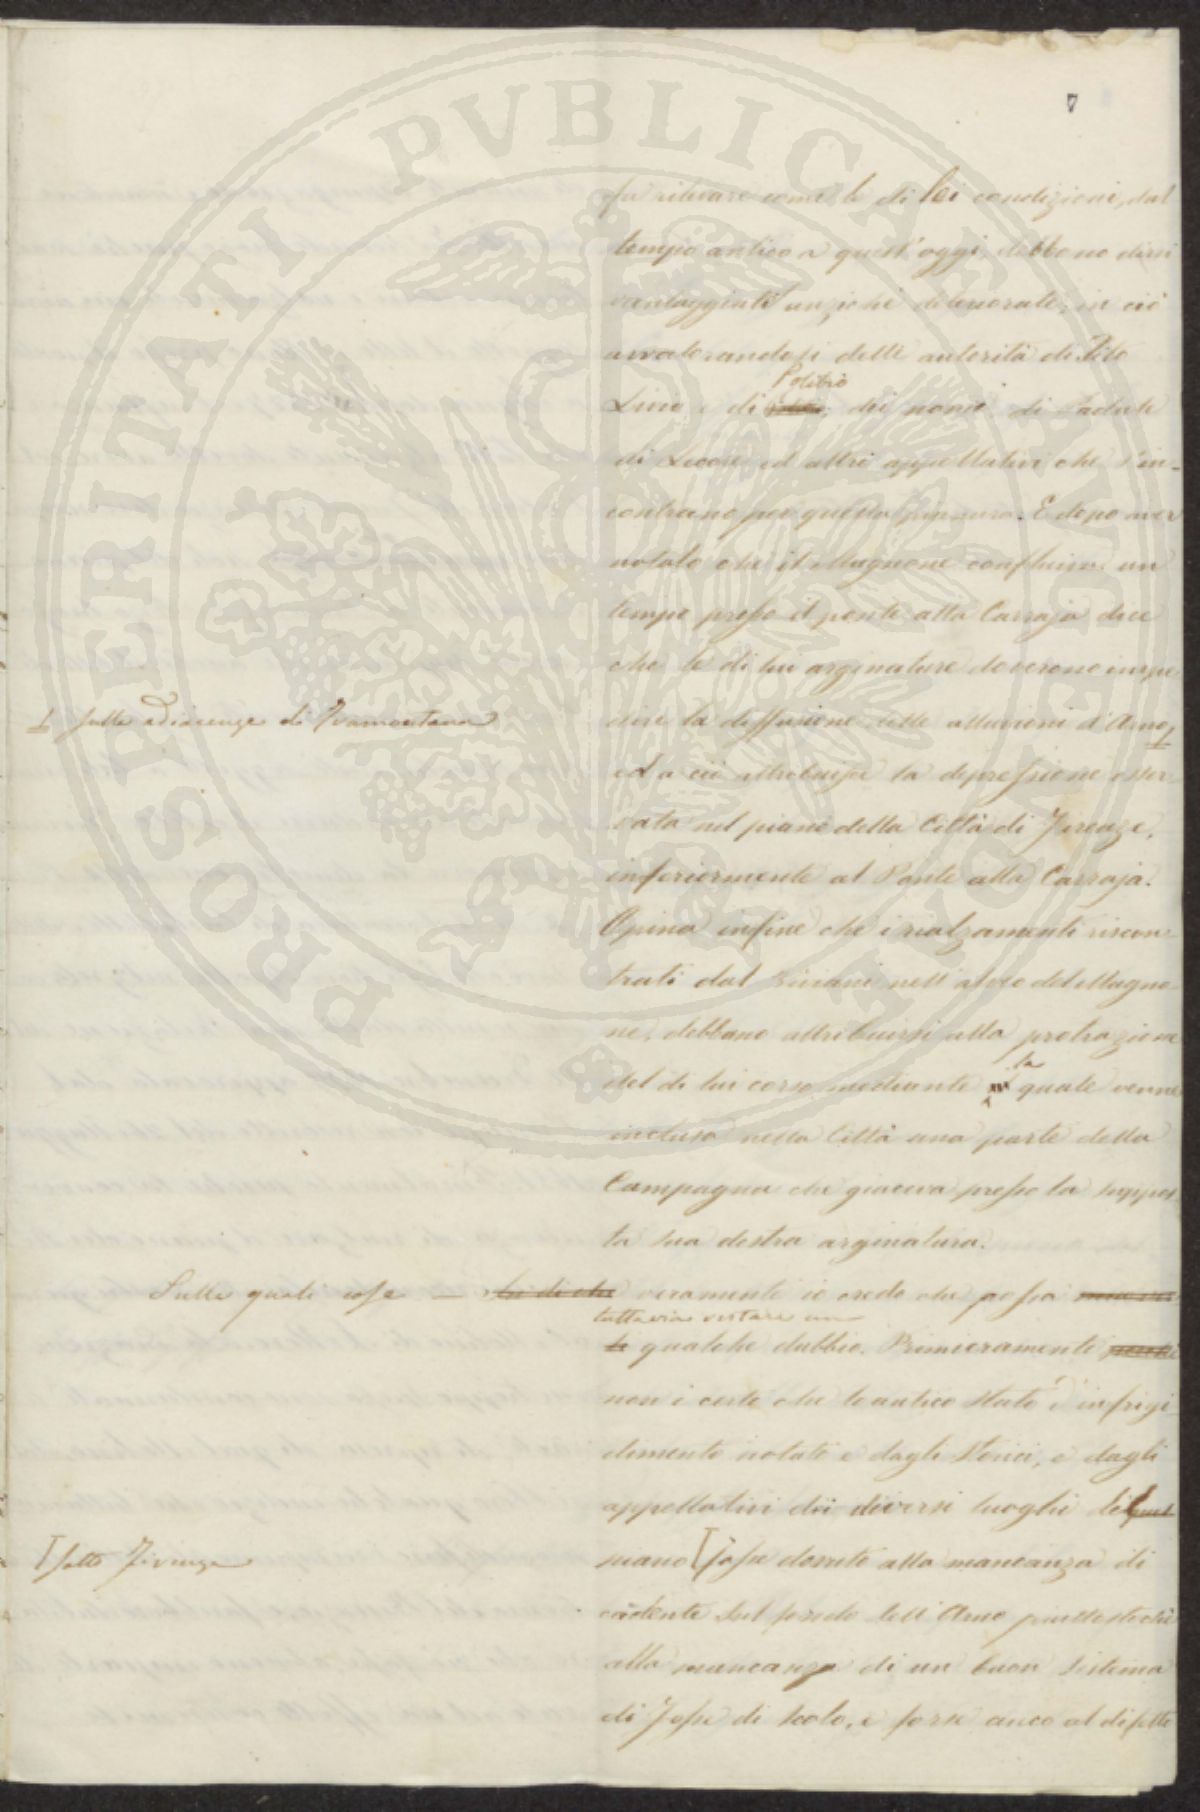 7
fa rilevare come le di lei condizioni, dal
tempo antico a quest'oggi, debbono dirsi
vantaggiate anzichè deteriorate; in ciò
avvalorandosi delle autorità di Tito
Polibio
Livio e di dei nomi di Padule
di Lecore ed altri appellativi che s'in-
contrano per questa pianura. E dopo aver
notato che il Mugnone confluiva un
tempo presso il ponte alla Carraja dice
che le di lui arginature doverono impe
dire la diffusione delle alluvioni d'Arno
sulle adiacenze di Tramontana
ed a ciò attribuisce la depressione osser
vata nel piano della Città di Firenze,
inferiormente al Ponte alla Carraja.
Opina infine che i rialzamenti riscon-
trati dal Viviani nell'alveo del Mugno-
ne, debbano attribuirsi alla protrazione
del di lui corso mediante la quale venne
inclusa nella Città una parte della
Campagna che giaceva presso la suppos-
ta sua destra arginatura.
Sulle quali cose — veramente io credo che possa
tuttavia restare un
qualche dubbio. Primieramente
non è certo che lo antico stato d'infrigi
dimento notato e dagli storici, e dagli
appellativi dei diversi luoghi del
piano fosse dovuto alla mancanza di
sotto Firenze
cadente sul fondo dell'Arno piuttostochè
alla mancanza di un buon sistema
di fosse di scolo, e forse anco al difetto